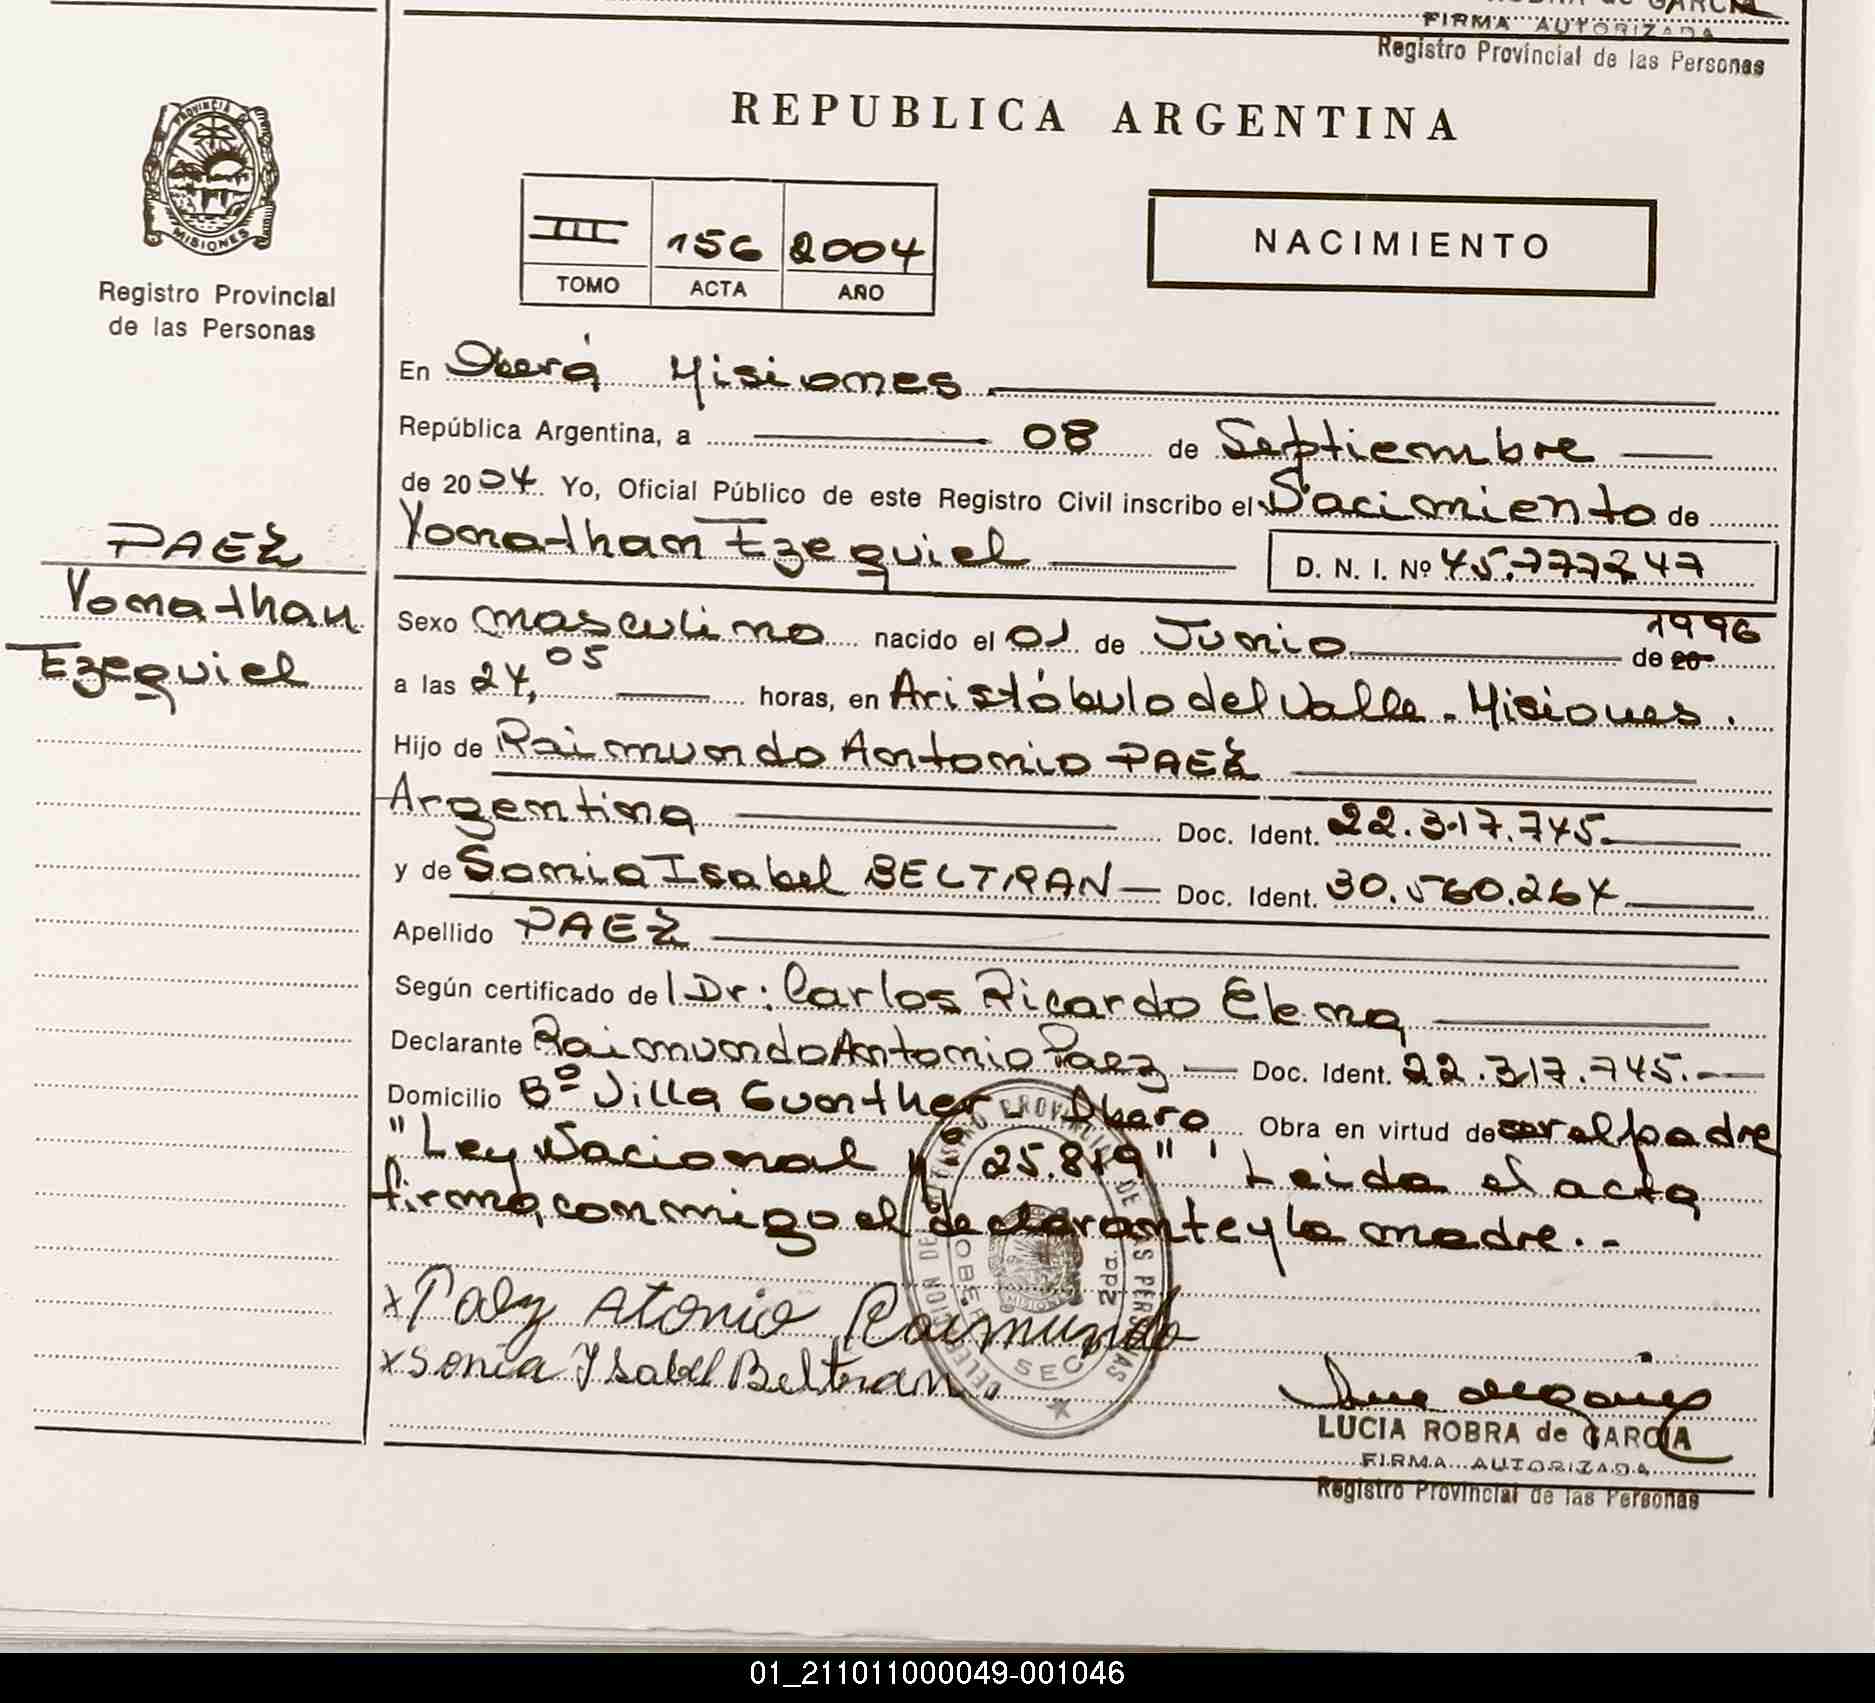 GARCIA
FIRMA AUTORIZADA
Registro Provincial de las Personas
REPUBLICA ARGENTINA
PROVINCIA
MISIONES
Registro Provincial
de las Personas
III 156 2004
TOMO ACTA AÑO
NACIMIENTO
En Oberá Misiones
República Argentina, a 08 de Septiembre
de 2004 Yo, Oficial Público de este Registro Civil inscribo el Nacimiento de
Yonathan Ezequiel D. N. I. Nº 45.777247
PAEZ
Yonathan
Ezequiel
Sexo masculino nacido el 01 de Junio de 20 1996
a las 24,05 horas, en Aristóbulo del Valle - Misiones.
Hijo de Raimundo Antonio PAEZ
Argentina Doc. Ident. 22.317.745.
y de Sonia Isabel BELTRAN Doc. Ident. 30.560.264
Apellido PAEZ
Según certificado del Dr: Carlos Ricardo Elena
Declarante Raimundo Antonio Paez Doc. Ident. 22.317.745.
Domicilio Bº Villa Gunther - Obera Obra en virtud de ser el padre
"Ley Nacional Nº 25.819", Leida el acta
firma conmigo el declarante y la madre.-
x Paez Atonio Raimundo
x Sonia Isabel Beltran.
DELEGACION DE REGISTRO PROVINCIAL DE LAS PERSONAS
2da. SEC
LUCIA ROBRA de GARCIA
FIRMA AUTORIZADA
Registro Provincial de las Personas
01_211011000049-001046